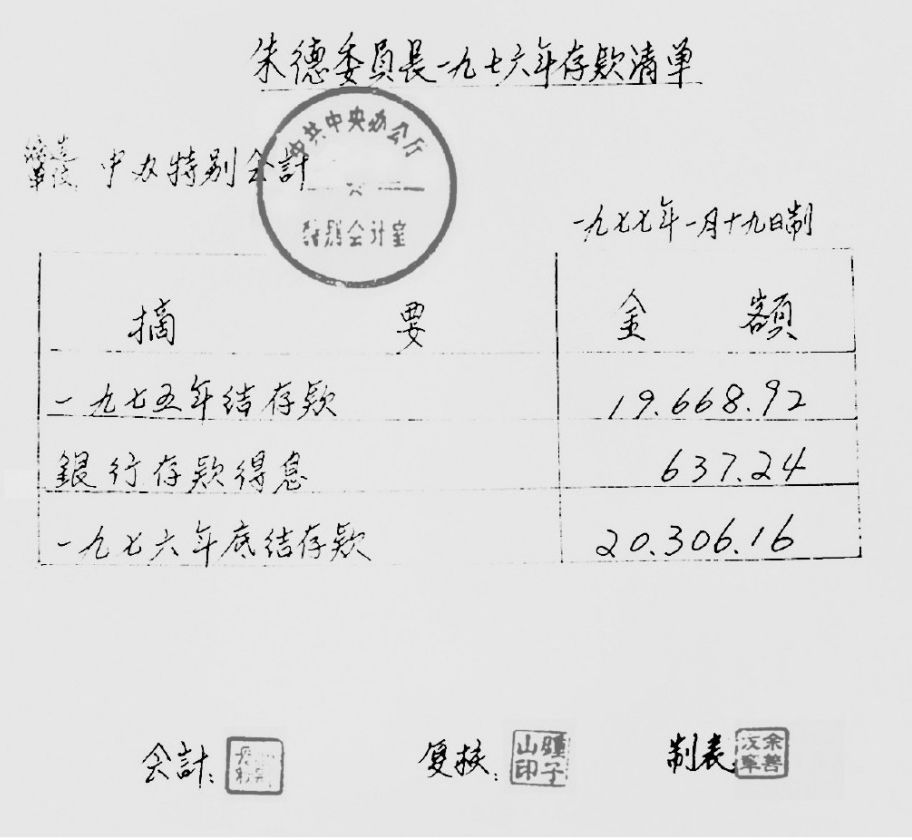 朱德委員長一九七六年存款清单
中共中央办公厅
中办特别会計
特别会计室
一九七七年一月十九日制
摘 要 金 額
一九七五年结存款 19.668.92
銀行存款得息 637.24
一九七六年底结存款 20.306.16
会計: 复核: 制表
山 印
余善